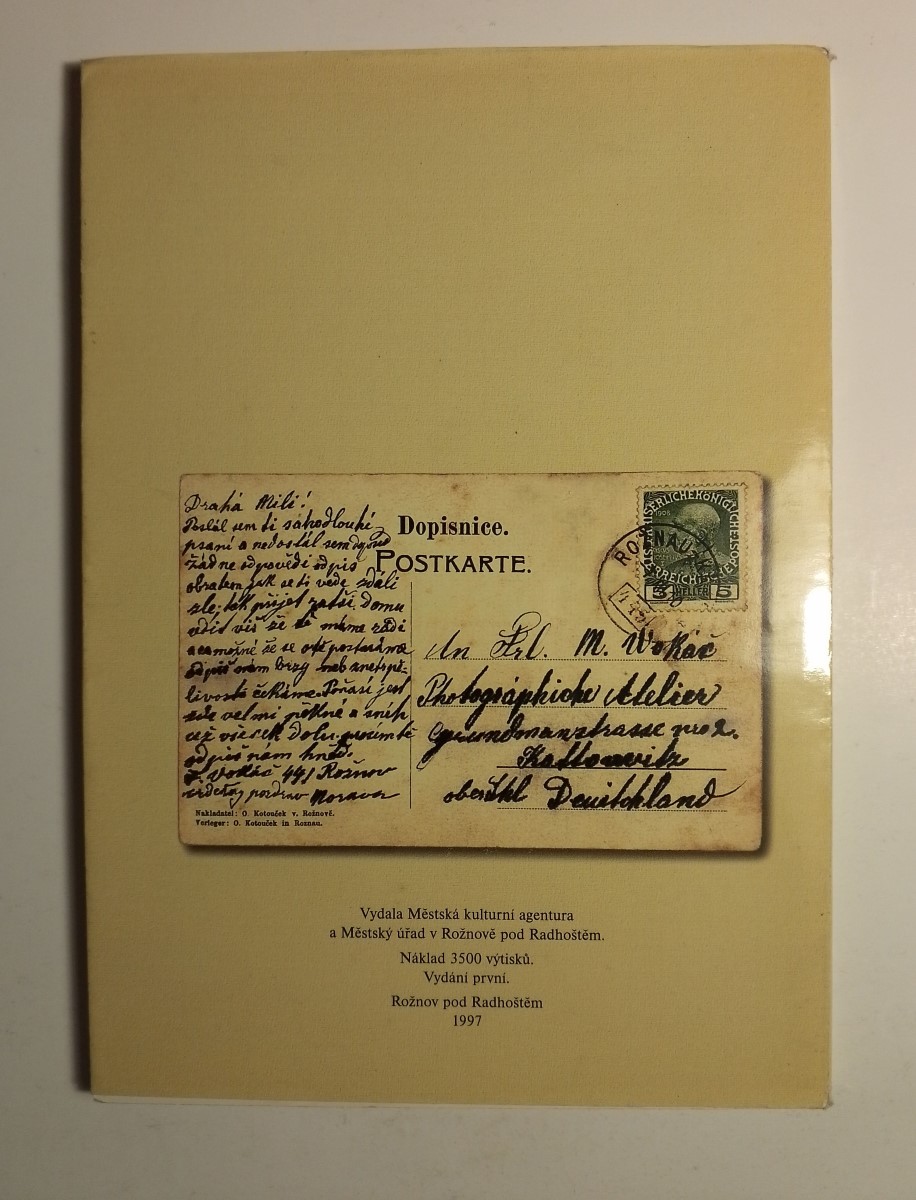 Drahá Mili!
Poslal sem ti sáhodlouhé
psaní a nedostal sem dopo
žádne odpovědi odpiš
obratem jak se ti vede zdali
zle tak přijet zatší. Domu
vždit viš že tě máme rádi
a možné že se
odpiš nám brzy neb z netrpě-
livostí čekáme. Počasí jest
zde velmi pěkné a sníh
všecek dolu. prosím tě
odpiš nám hned.
Vokáč 441 Rožnov
srdečný pozdrav Morava
Nakladatel: O. Kotouček v. Rožnově.
Verleger: O. Kotouček in Roznau.
Dopisnice.
POSTKARTE.
KAISERLICHE KÖNIGLICHE
ÖSTERREICHISCHE POST
1908
5 HELLER 5
ROŽNAU
An Frl. M. Wokáč
Photographiche Atelier
Grundmanztrasse nro 2.
Kattowitz
ober Deuitchland
Vydala Městská kulturní agentura
a Městský úřad v Rožnově pod Radhoštěm.
Náklad 3500 výtisků.
Vydání první.
Rožnov pod Radhoštěm
1997